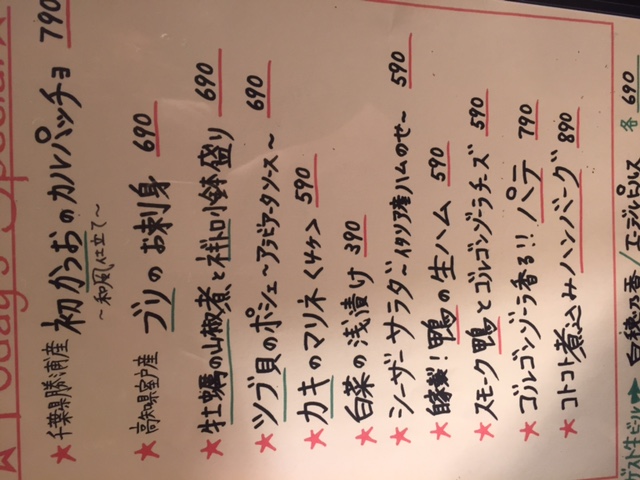 Today's Special
★千葉県勝浦産
初かつおのカルパッチョ 790
～和風仕立て～
★高知県室戸産
ブリのお刺身 690
★牡蠣の山椒煮と 小鉢盛り 690
★ツブ貝のポシェ～アラビアータソース～ 690
★カキのマリネ〈4ケ〉 590
★白菜の浅漬け 390
★シーザーサラダ～イタリア産ハムのせ～ 590
★自家製!鴨の生ハム 590
★スモーク鴨とゴルゴンゾーラチーズ 590
★ゴルゴンゾーラ香る!!パテ 790
★コトコト煮込みハンバーグ 890
ゲスト生ビール▶ 各690